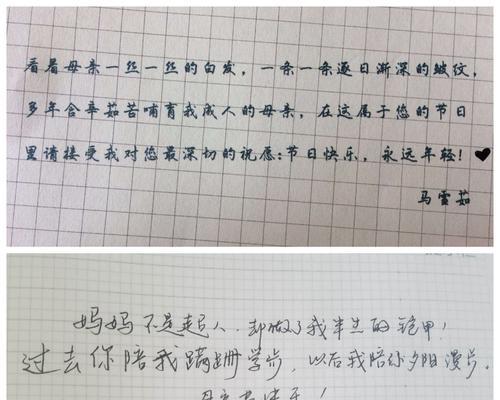 看着母亲一丝一丝的白发，一条一条逐日渐深的皱纹，
多年含辛茹苦哺育我成人的母亲，在这属于您的节日
里请接受我对您最深切的祝愿：节日快乐，永远年轻！♥
马雪茹
妈妈不是超人，却做了我半生的铠甲！
过去你陪我蹒跚学步，以后我陪你夕阳漫步。